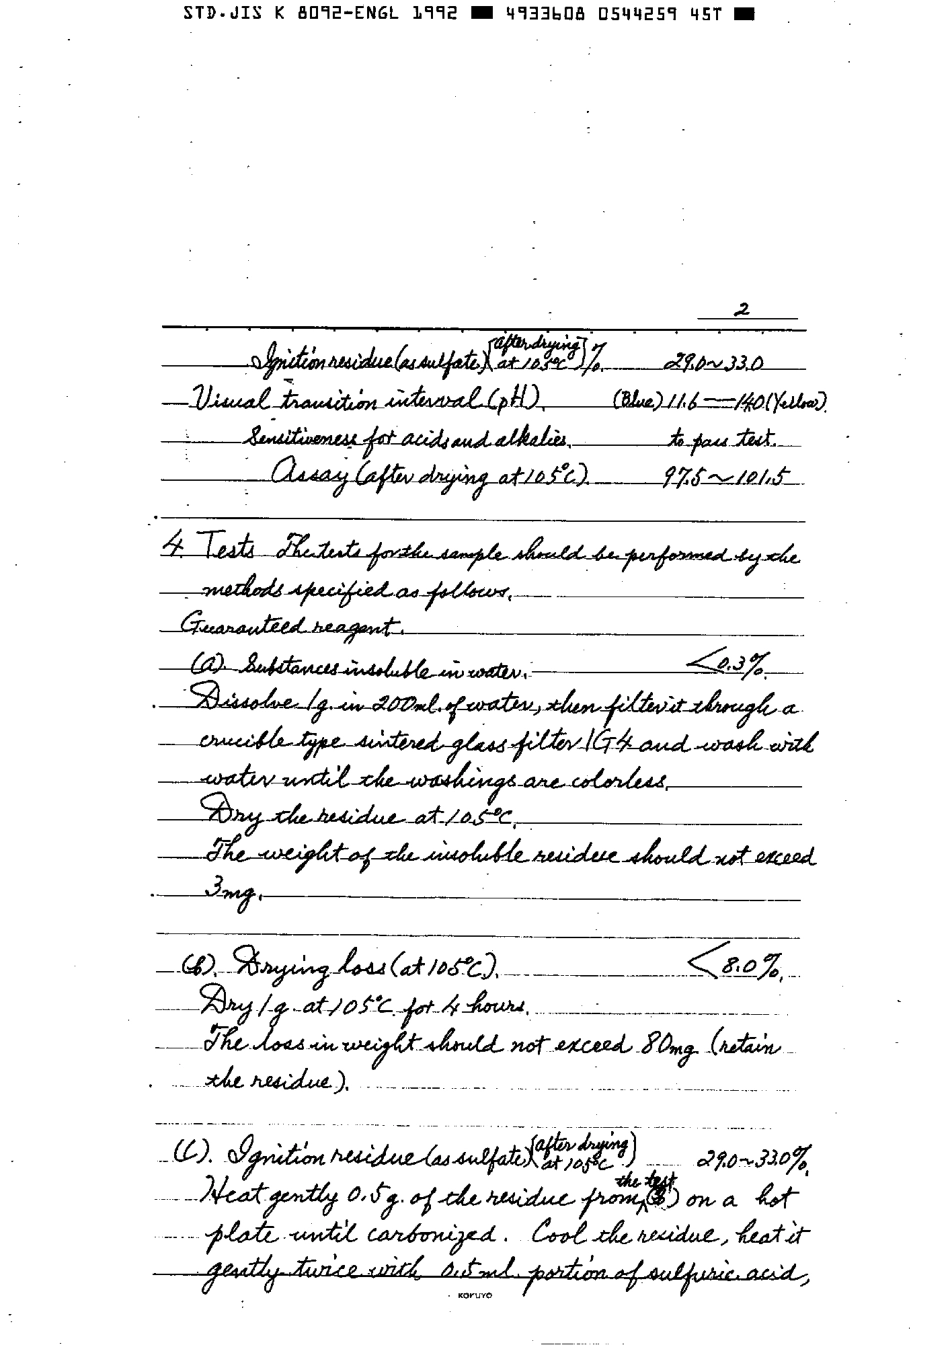 STD.JIS K 8092-ENGL 1992 ■ 4933608 0544259 45T ■
2
Ignition residue (as sulfate) (after drying at 105°C) % 29.0~33.0
Visual transition interval (pH). (Blue) 11.6—14.0 (Yellow)
Sensitiveness for acids and alkalies. to pass test.
Assay (after drying at 105°C). 97.5~101.5
4. Tests The tests for the sample should be performed by the
methods specified as follows.
Guaranteed reagent.
(a). Substances insoluble in water. <0.3%.
Dissolve 1g. in 200ml. of water, then filter it through a
crucible type sintered glass filter 1G4 and wash with
water until the washings are colorless.
Dry the residue at 105°C.
The weight of the insoluble residue should not exceed
3mg.
(b). Drying loss (at 105°C). <8.0%.
Dry 1g. at 105°C. for 4 hours.
The loss in weight should not exceed 80mg. (retain
the residue).
(C). Ignition residue (as sulfate) (after drying at 105°C) 29.0~33.0%.
Heat gently 0.5g. of the residue from the test (B) on a hot
plate until carbonized. Cool the residue, heat it
gently twice with 0.5ml. portion of sulfuric acid,
KOKUYO